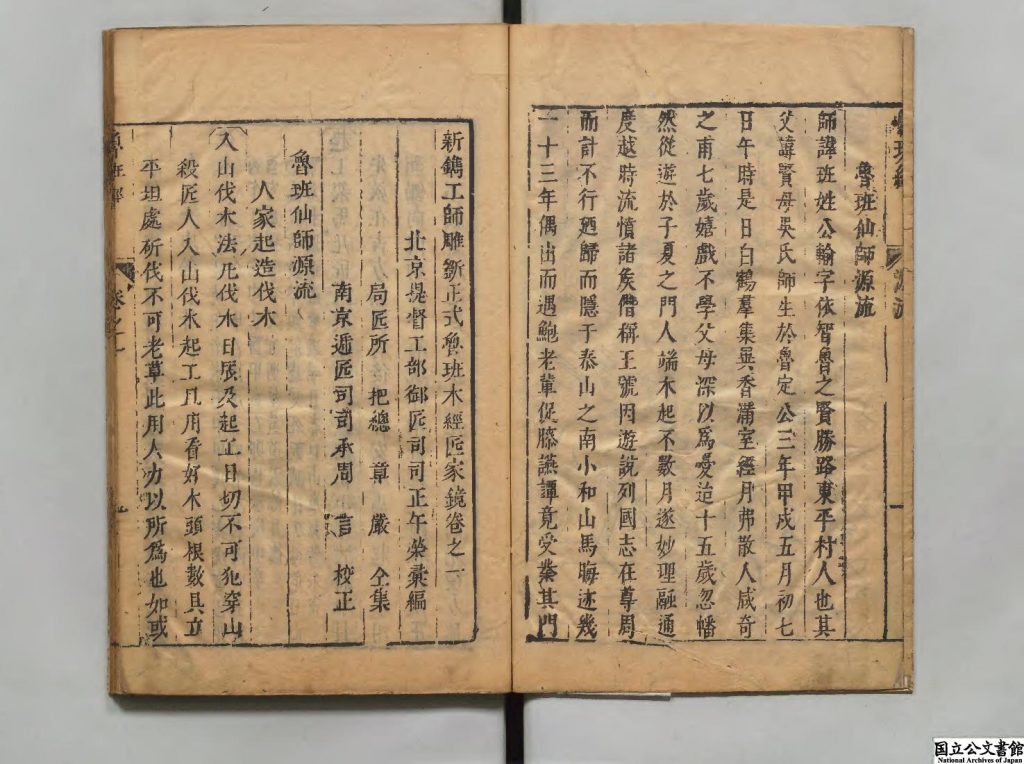 魯班仙師源流
師諱班姓公輸字依智魯之賢勝路東平村人也其
父諱賢母吳氏師生於魯定公三年甲戌五月初七
日午時是日白鶴羣集異香滿室經月弗散人咸奇
之甫七歲嬉戲不學父母深以爲憂迨十五歲忽幡
然從遊於子夏之門人端木起不數月遂妙理融通
度越時流憤諸矦僭稱王號因遊說列國志在尊周
而計不行廼歸而隱于泰山之南小和山焉晦迹幾
一十三年偶出而遇鮑老輩促膝讌譚竟受業其門
新鐫工師雕斵正式魯班木經匠家鏡卷之一
北京提督工部御匠司司正午榮彙編
局匠所把總章嚴仝集
南京逓匠司司承周言校正
魯班仙師源流
人家起造伐木
入山伐木法凡伐木日辰及起工日切不可犯穿山
殺匠人入山伐木起工且用看好木頭根數具立
平坦處斫伐不可老草此用人力以所爲也如或
魯班經
源流
卷之一
国立公文書館
National Archives of Japan